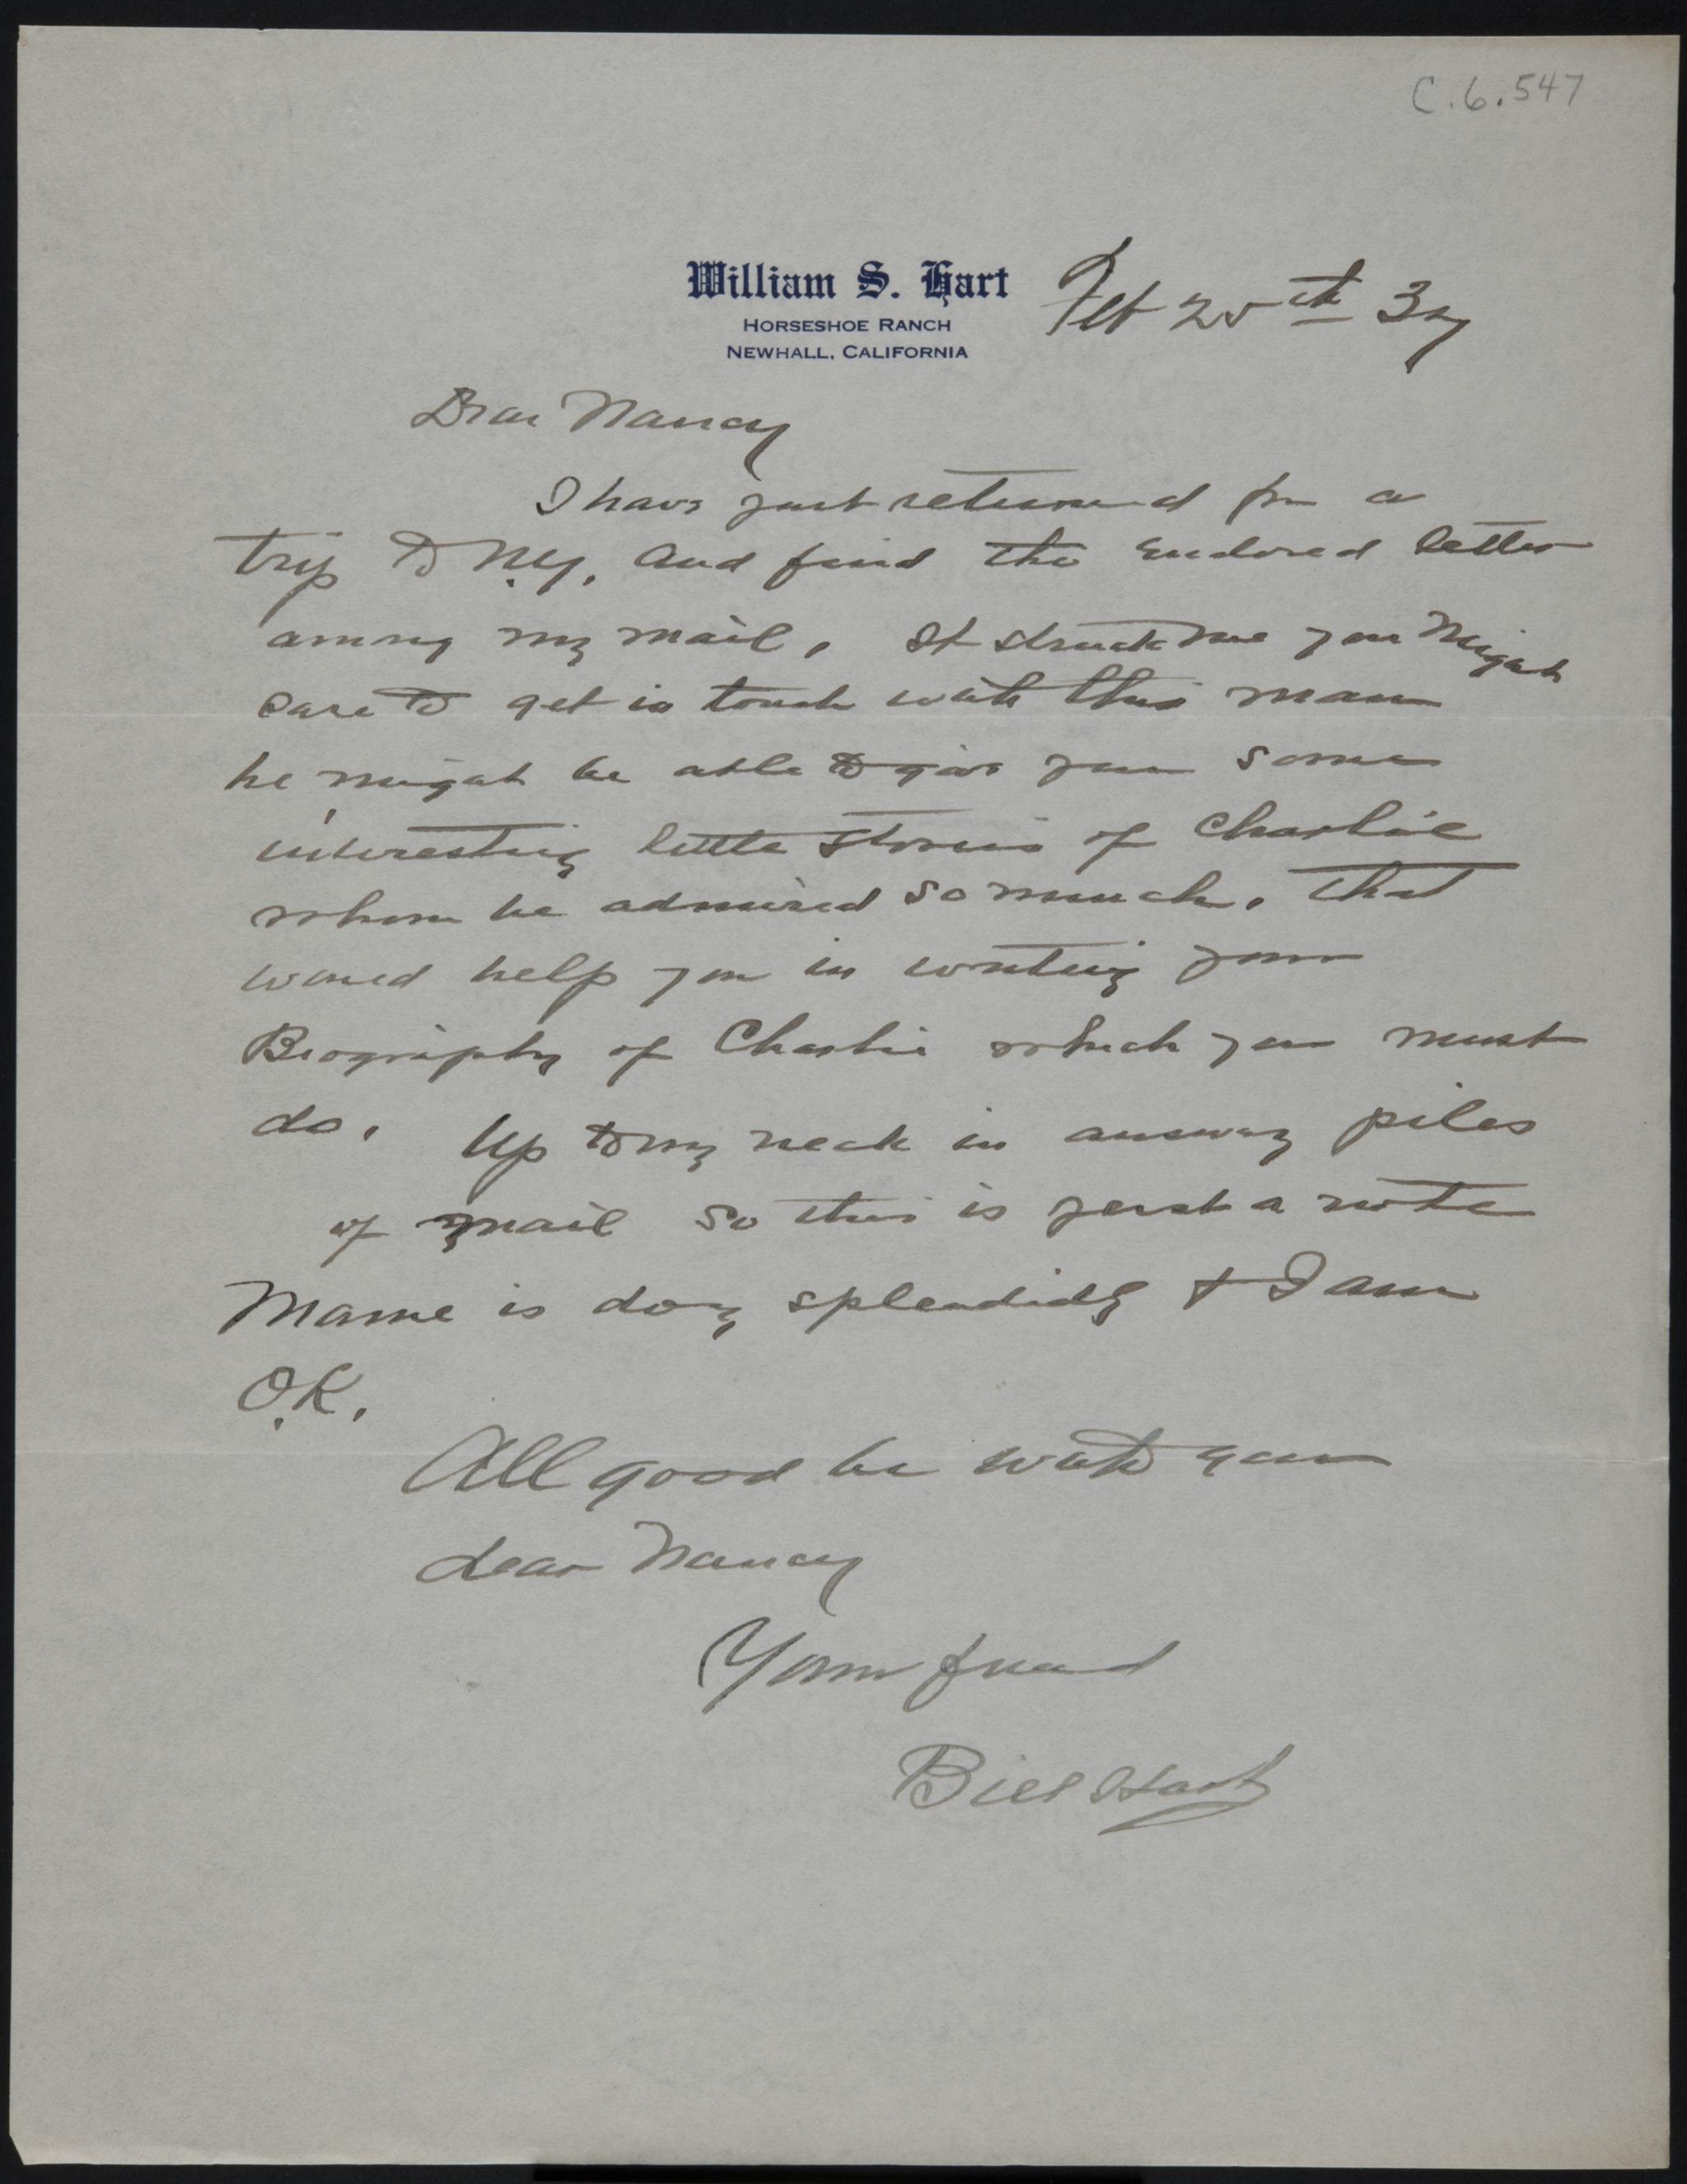 C.6.547
William S. Hart
HORSESHOE RANCH
NEWHALL, CALIFORNIA
Feb 25th 37
Dear Nancy
I have just returned fm a
trip to N.Y. and find the enclosed letter
among my mail, It struck me you might
care to get in touch with this man
he might be able to give you some
interesting little stories of Charlie
whom he admired so much. That
would help you in writing your
Biography of Charlie which you must
do. Up to my neck in piles
of mail so this is just a note
Mame is doing splendidly & I am
O.K.
All good be with you
dear Nancy
Your friend
Bill Hart